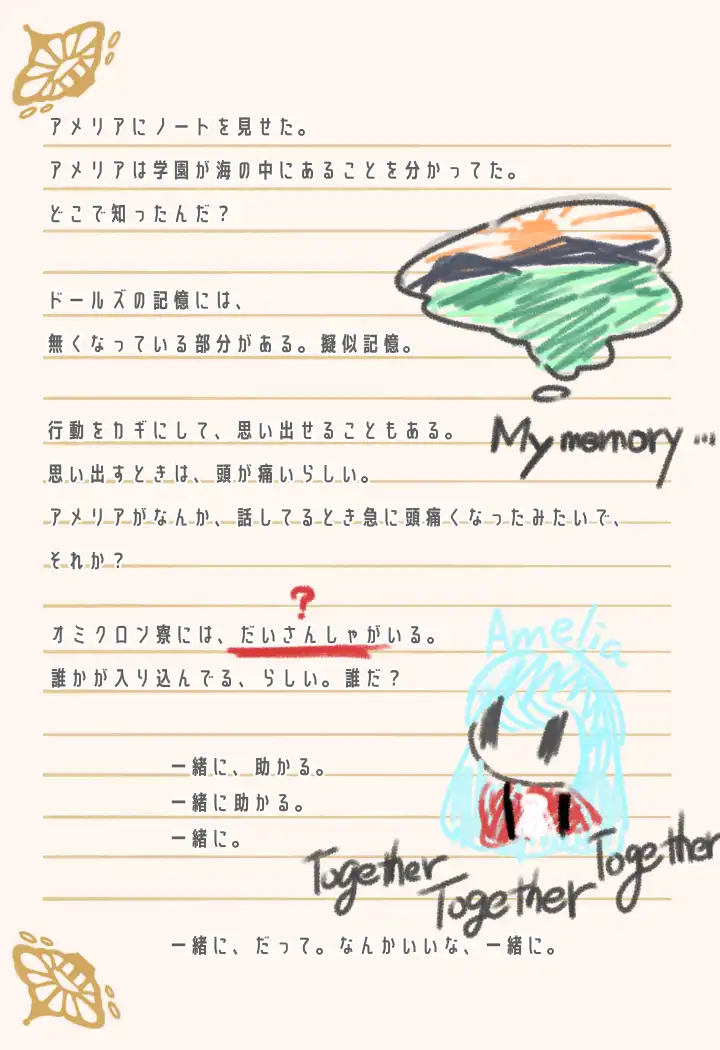 アメリアにノートを見せた。
アメリアは学園が海の中にあることを分かってた。
どこで知ったんだ？
ドールズの記憶には、
無くなっている部分がある。擬似記憶。
My memory…
行動をカギにして、思い出せることもある。
思い出すときは、頭が痛いらしい。
アメリアがなんか、話してるとき急に頭痛くなったみたいで、
それか？
?
オミクロン寮には、だいさんしゃがいる。
Amelia
誰かが入り込んでる、らしい。誰だ？
一緒に、助かる。
一緒に助かる。
一緒に。
Together
Together
Together
一緒に、だって。なんかいいな、一緒に。